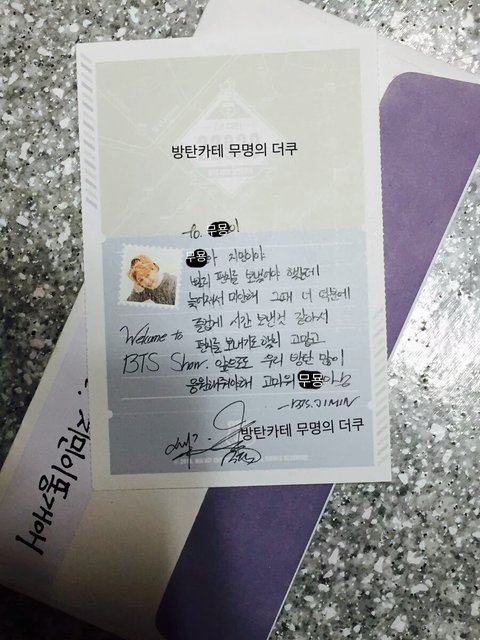 방탄카테 무명의 더쿠
to. 무묭이
무묭아 지민이야
빨리 편지를 보냈어야 했는데
늦어져서 미안해 그때 너 덕분에
즐겁게 시간 보낸것 같아서
편지를 보내기로 했어 고맙고
Welcome to
BTS Show. 앞으로도 우리 방탄 많이
응원해줘야해 고마워 무묭아
-BTS. JIMIN
방탄카테 무명의 더쿠
지민이